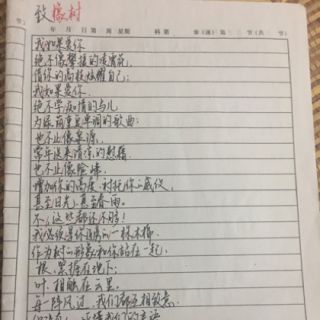 致橡树
节)
年 月 日第 周 星期 科第 章(课)第 节(共 节)
我如果爱你
绝不像攀援的凌霄花,
借你的高枝炫耀自己;
我如果爱你
绝不学痴情的鸟儿
为绿荫重复单调的歌曲;
也不止像泉源,
常年送来清凉的慰藉
也不止像险峰,
增加你的高度,衬托你的威仪,
甚至日光,甚至春雨。
不,这些都还不够!
我必须是你近旁的一株木棉,
作为树的形象和你站在一起;
根,紧握在地下;
叶,相触在云里。
每一阵风过,我们都互相致意,